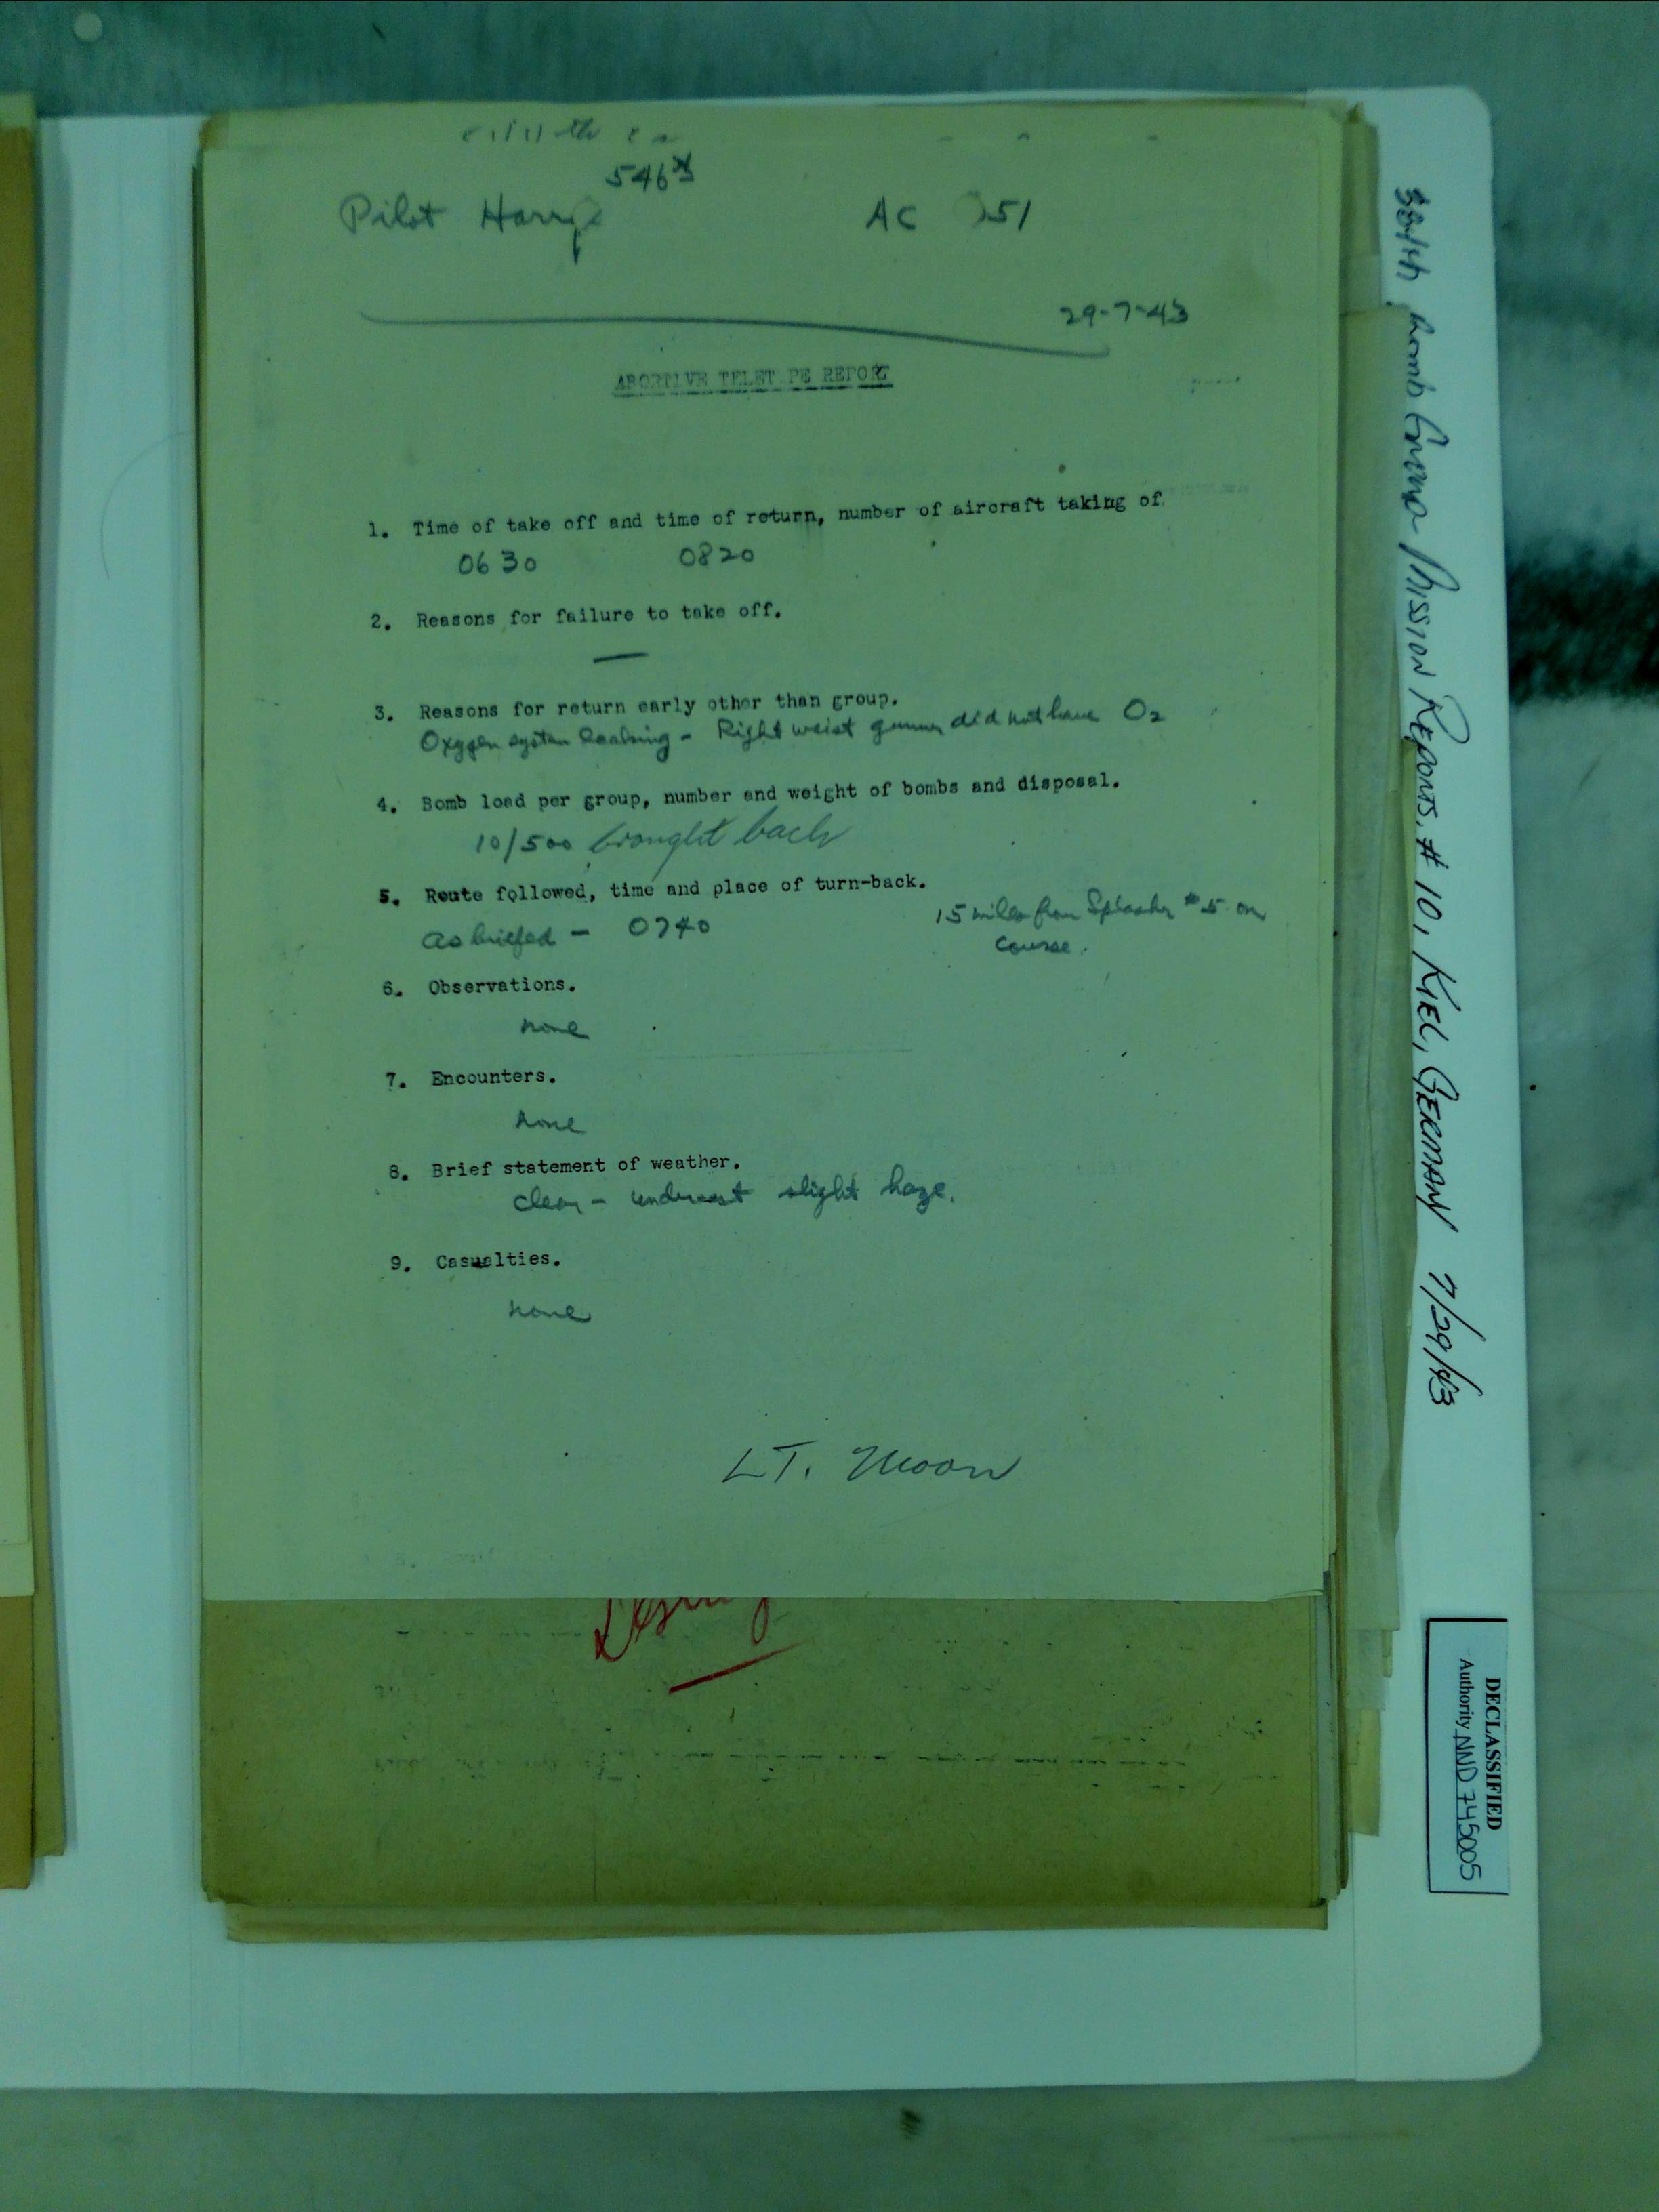 Pilot
AC 51
29-7-43
ABORTIVE TELET PE REPORT
1. Time of take off and time of return, number of aircraft taking of
0630 0820
2. Reasons for failure to take off.
—
3. Reasons for return early other than group.
Oxygen system leaking - Right waist gunner did not have O2
4. Bomb load per group, number and weight of bombs and disposal.
10/500 brought back
5. Route followed, time and place of turn-back.
As briefed - 0740 15 miles from Splasher #5 on
course.
6. Observations.
none
7. Encounters.
none
8. Brief statement of weather.
clear - undercast slight haze.
9. Casualties.
none
LT. Moon
384th Bomb Group Mission Reports, # 10, KIEL, GERMANY 7/29/43
DECLASSIFIED
Authority NND 745005